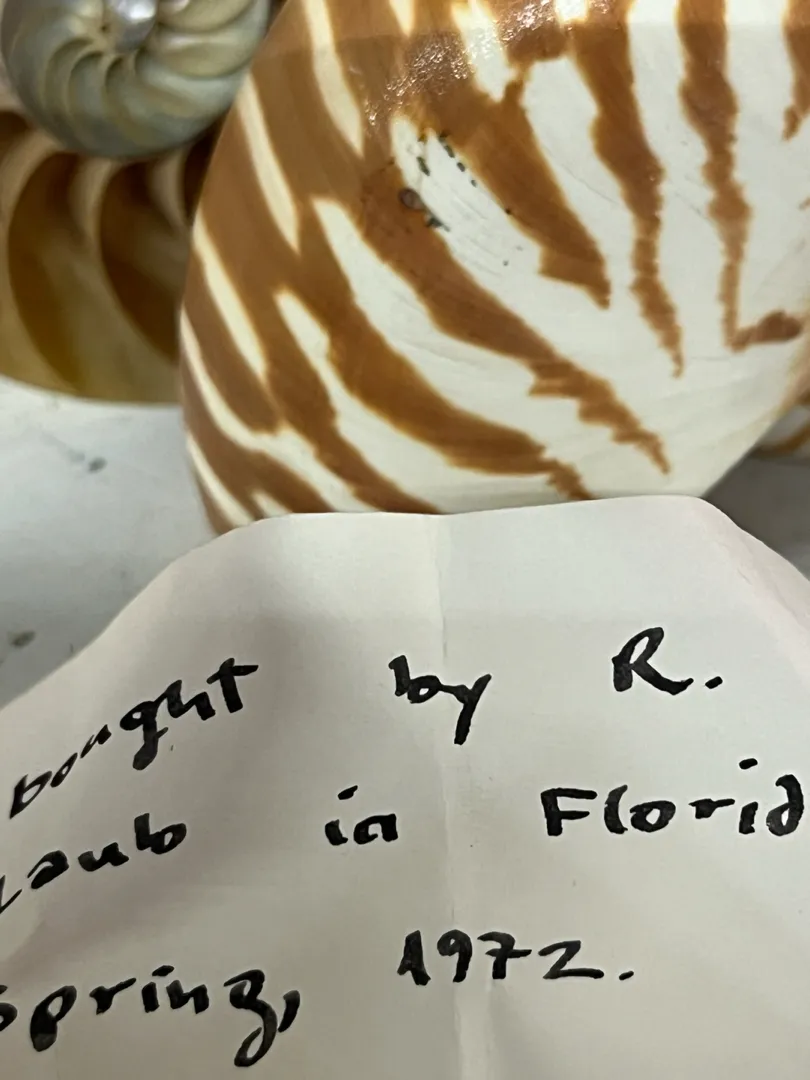 bought by R.
in Florid
Spring, 1972.